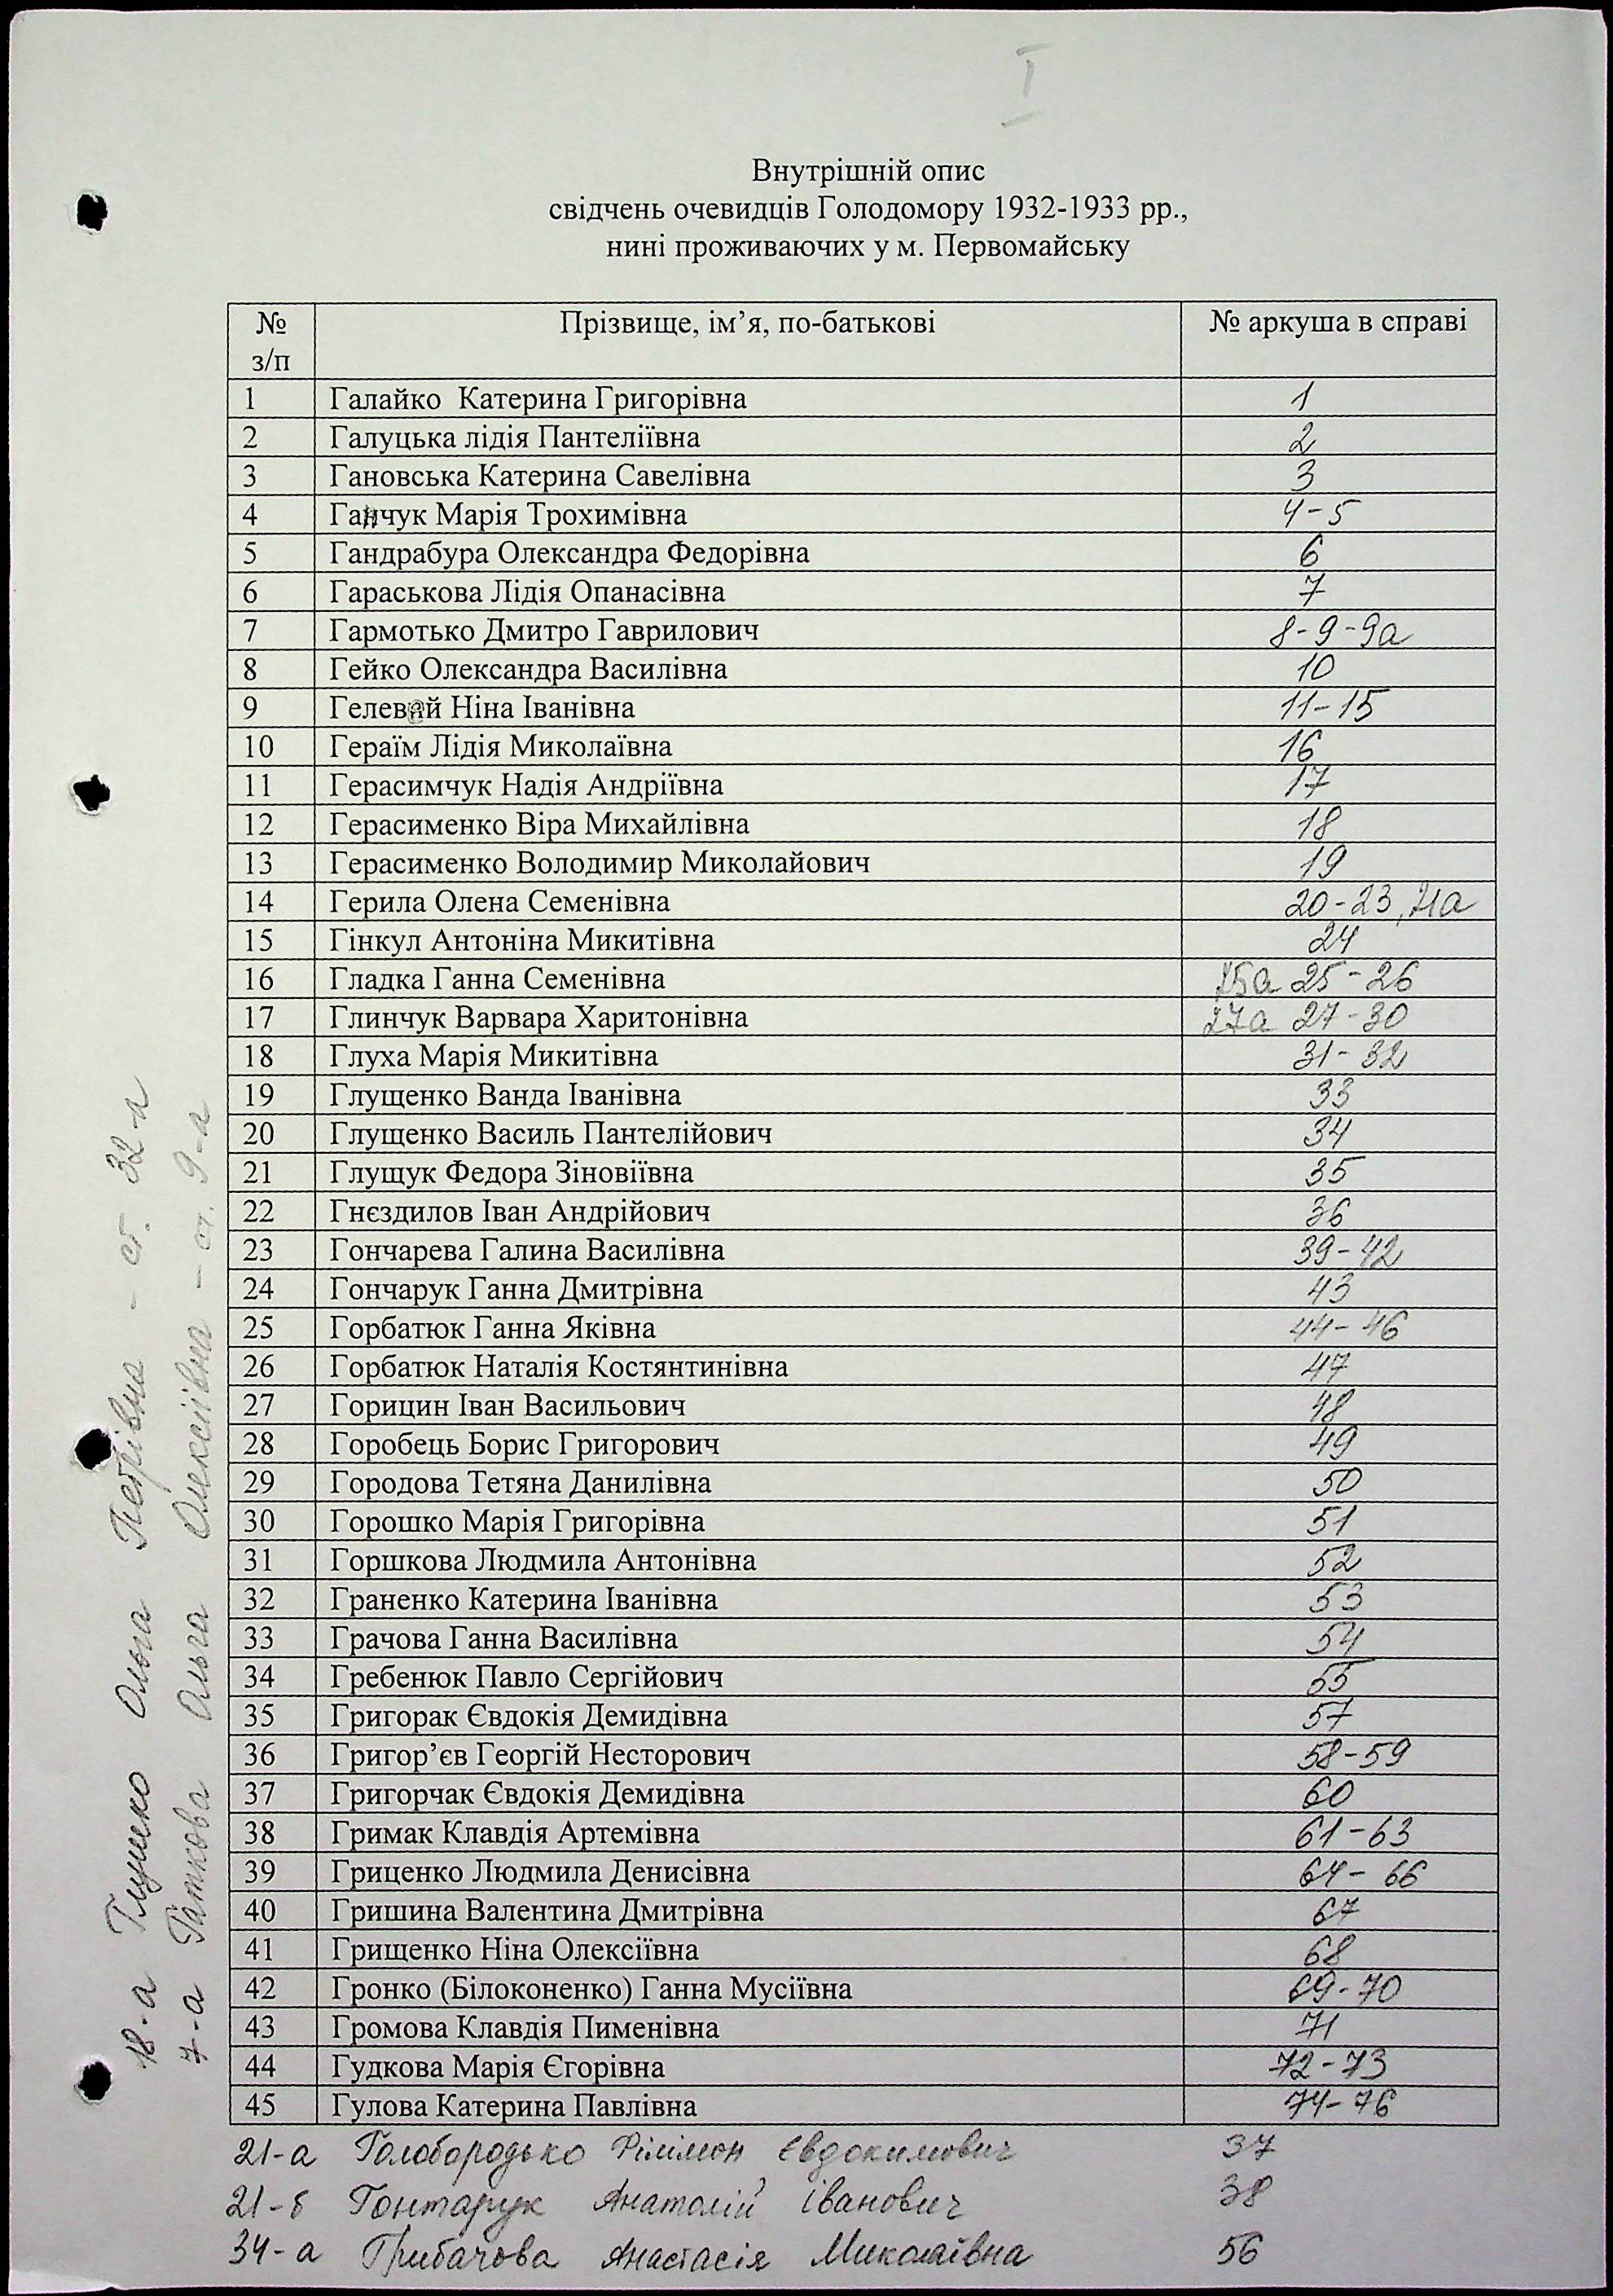 I
Внутрішній опис
свідчень очевидців Голодомору 1932-1933 рр.,
нині проживаючих у м. Первомайську
№ з/п Прізвище, ім’я, по-батькові № аркуша в справі
1 Галайко Катерина Григорівна 1
2 Галуцька лідія Пантеліївна 2
3 Гановська Катерина Савелівна 3
4 Ганчук Марія Трохимівна 4-5
5 Гандрабура Олександра Федорівна 6
6 Гараськова Лідія Опанасівна 7
7 Гармотько Дмитро Гаврилович 8-9-9а
8 Гейко Олександра Василівна 10
9 Гелевей Ніна Іванівна 11-15
10 Гераїм Лідія Миколаївна 16
11 Герасимчук Надія Андріївна 17
12 Герасименко Віра Михайлівна 18
13 Герасименко Володимир Миколайович 19
14 Герила Олена Семенівна 20-23,
15 Гінкул Антоніна Микитівна 24
16 Гладка Ганна Семенівна 25-26
17 Глинчук Варвара Харитонівна 27а 27-30
18 Глуха Марія Микитівна 31-32
19 Глущенко Ванда Іванівна 33
20 Глущенко Василь Пантелійович 34
21 Глущук Федора Зіновіївна 35
22 Гнєздилов Іван Андрійович 36
23 Гончарева Галина Василівна 39-42
24 Гончарук Ганна Дмитрівна 43
25 Горбатюк Ганна Яківна 44-46
26 Горбатюк Наталія Костянтинівна 47
27 Горицин Іван Васильович 48
28 Горобець Борис Григорович 49
29 Городова Тетяна Данилівна 50
30 Горошко Марія Григорівна 51
31 Горшкова Людмила Антонівна 52
32 Граненко Катерина Іванівна 53
33 Грачова Ганна Василівна 54
34 Гребенюк Павло Сергійович 55
35 Григорак Євдокія Демидівна 57
36 Григор’єв Георгій Несторович 58-59
37 Григорчак Євдокія Демидівна 60
38 Гримак Клавдія Артемівна 61-63
39 Гриценко Людмила Денисівна 64-66
40 Гришина Валентина Дмитрівна 67
41 Грищенко Ніна Олексіївна 68
42 Гронко (Білоконенко) Ганна Мусіївна 69-70
43 Громова Клавдія Пименівна 71
44 Гудкова Марія Єгорівна 72-73
45 Гулова Катерина Павлівна 74-76
21-а Голобородько Філімон Євдокимович 37
21-б Гонтарук Анатолій Іванович 38
34-а Грибачова Анастасія Миколаївна 56
18-а Глушко Ольга Петрівна - ст. 32-а
7-а Гаткова Ольга Олексіївна - ст. 9-а